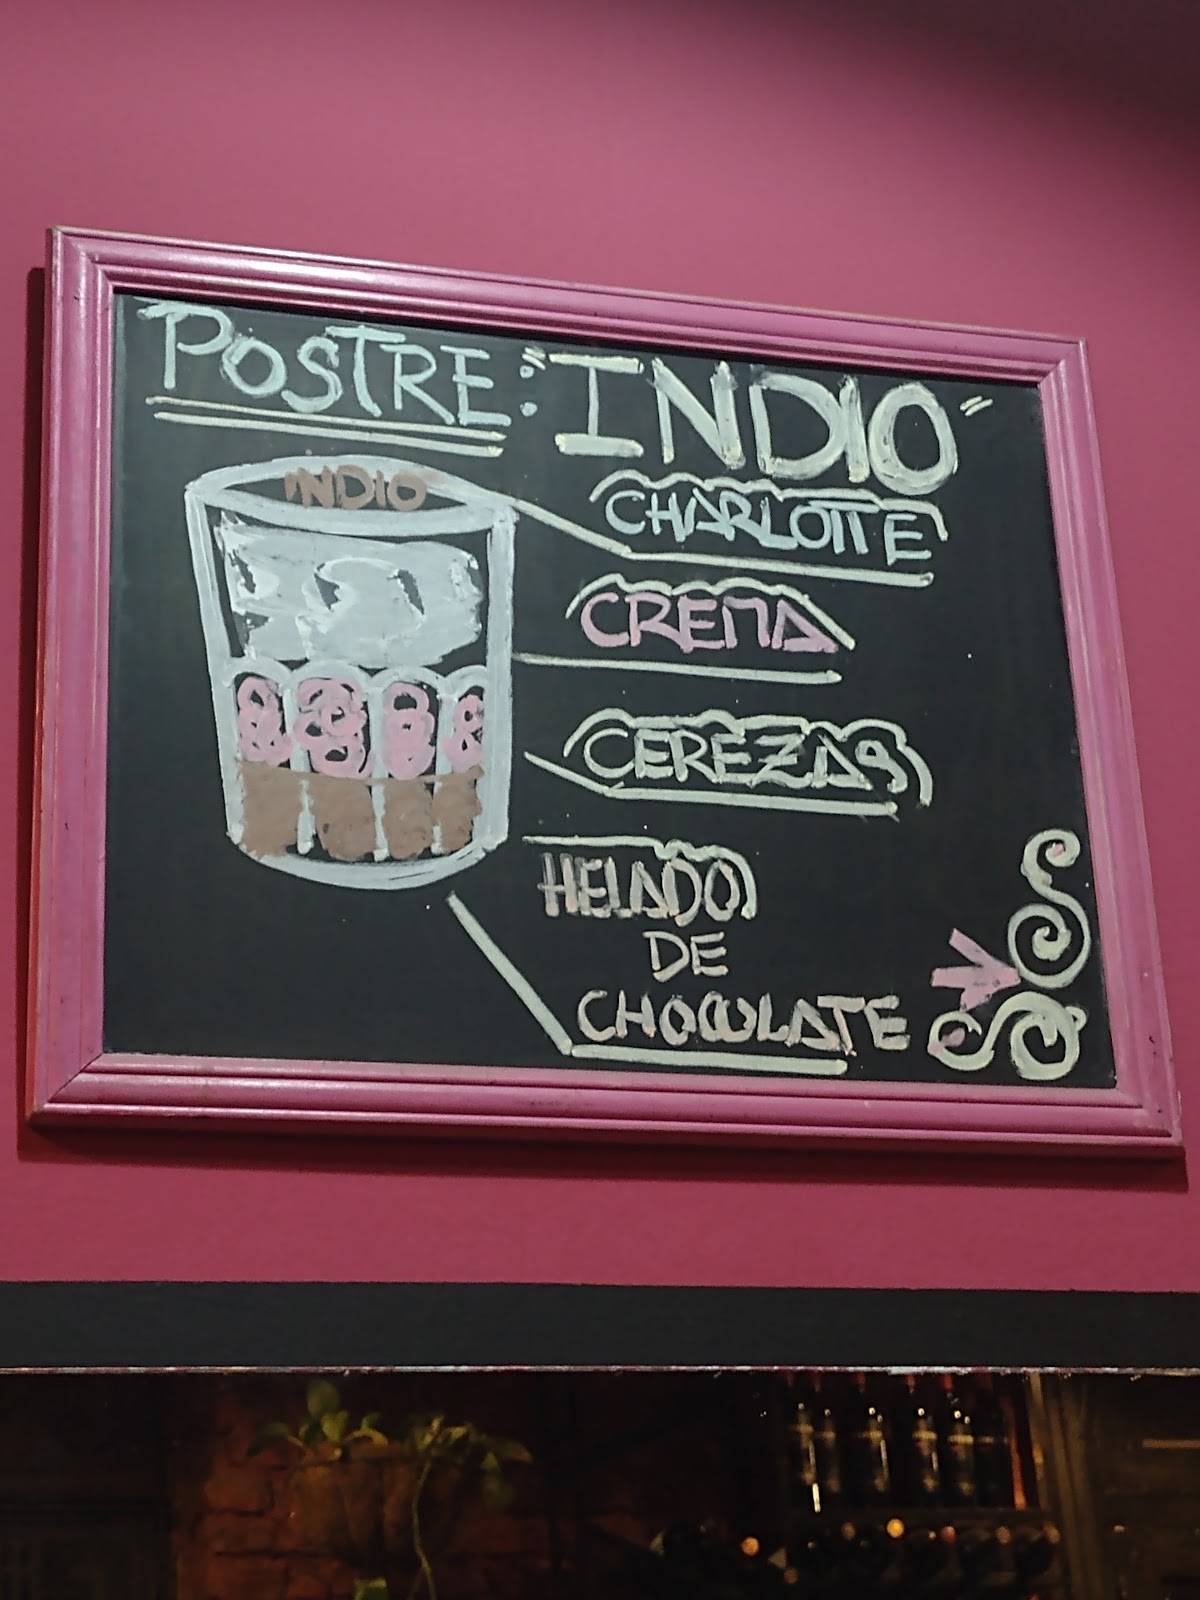 POSTRE: "INDIO"
INDIO
CHARLOTTE
CREMA
CEREZAS
HELADO
DE
CHOCOLATE